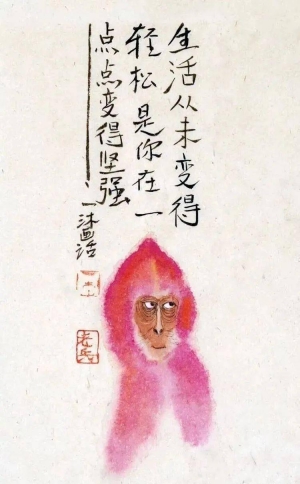 生活从未变得
轻松是你在一
点点变得坚强
一沐画话